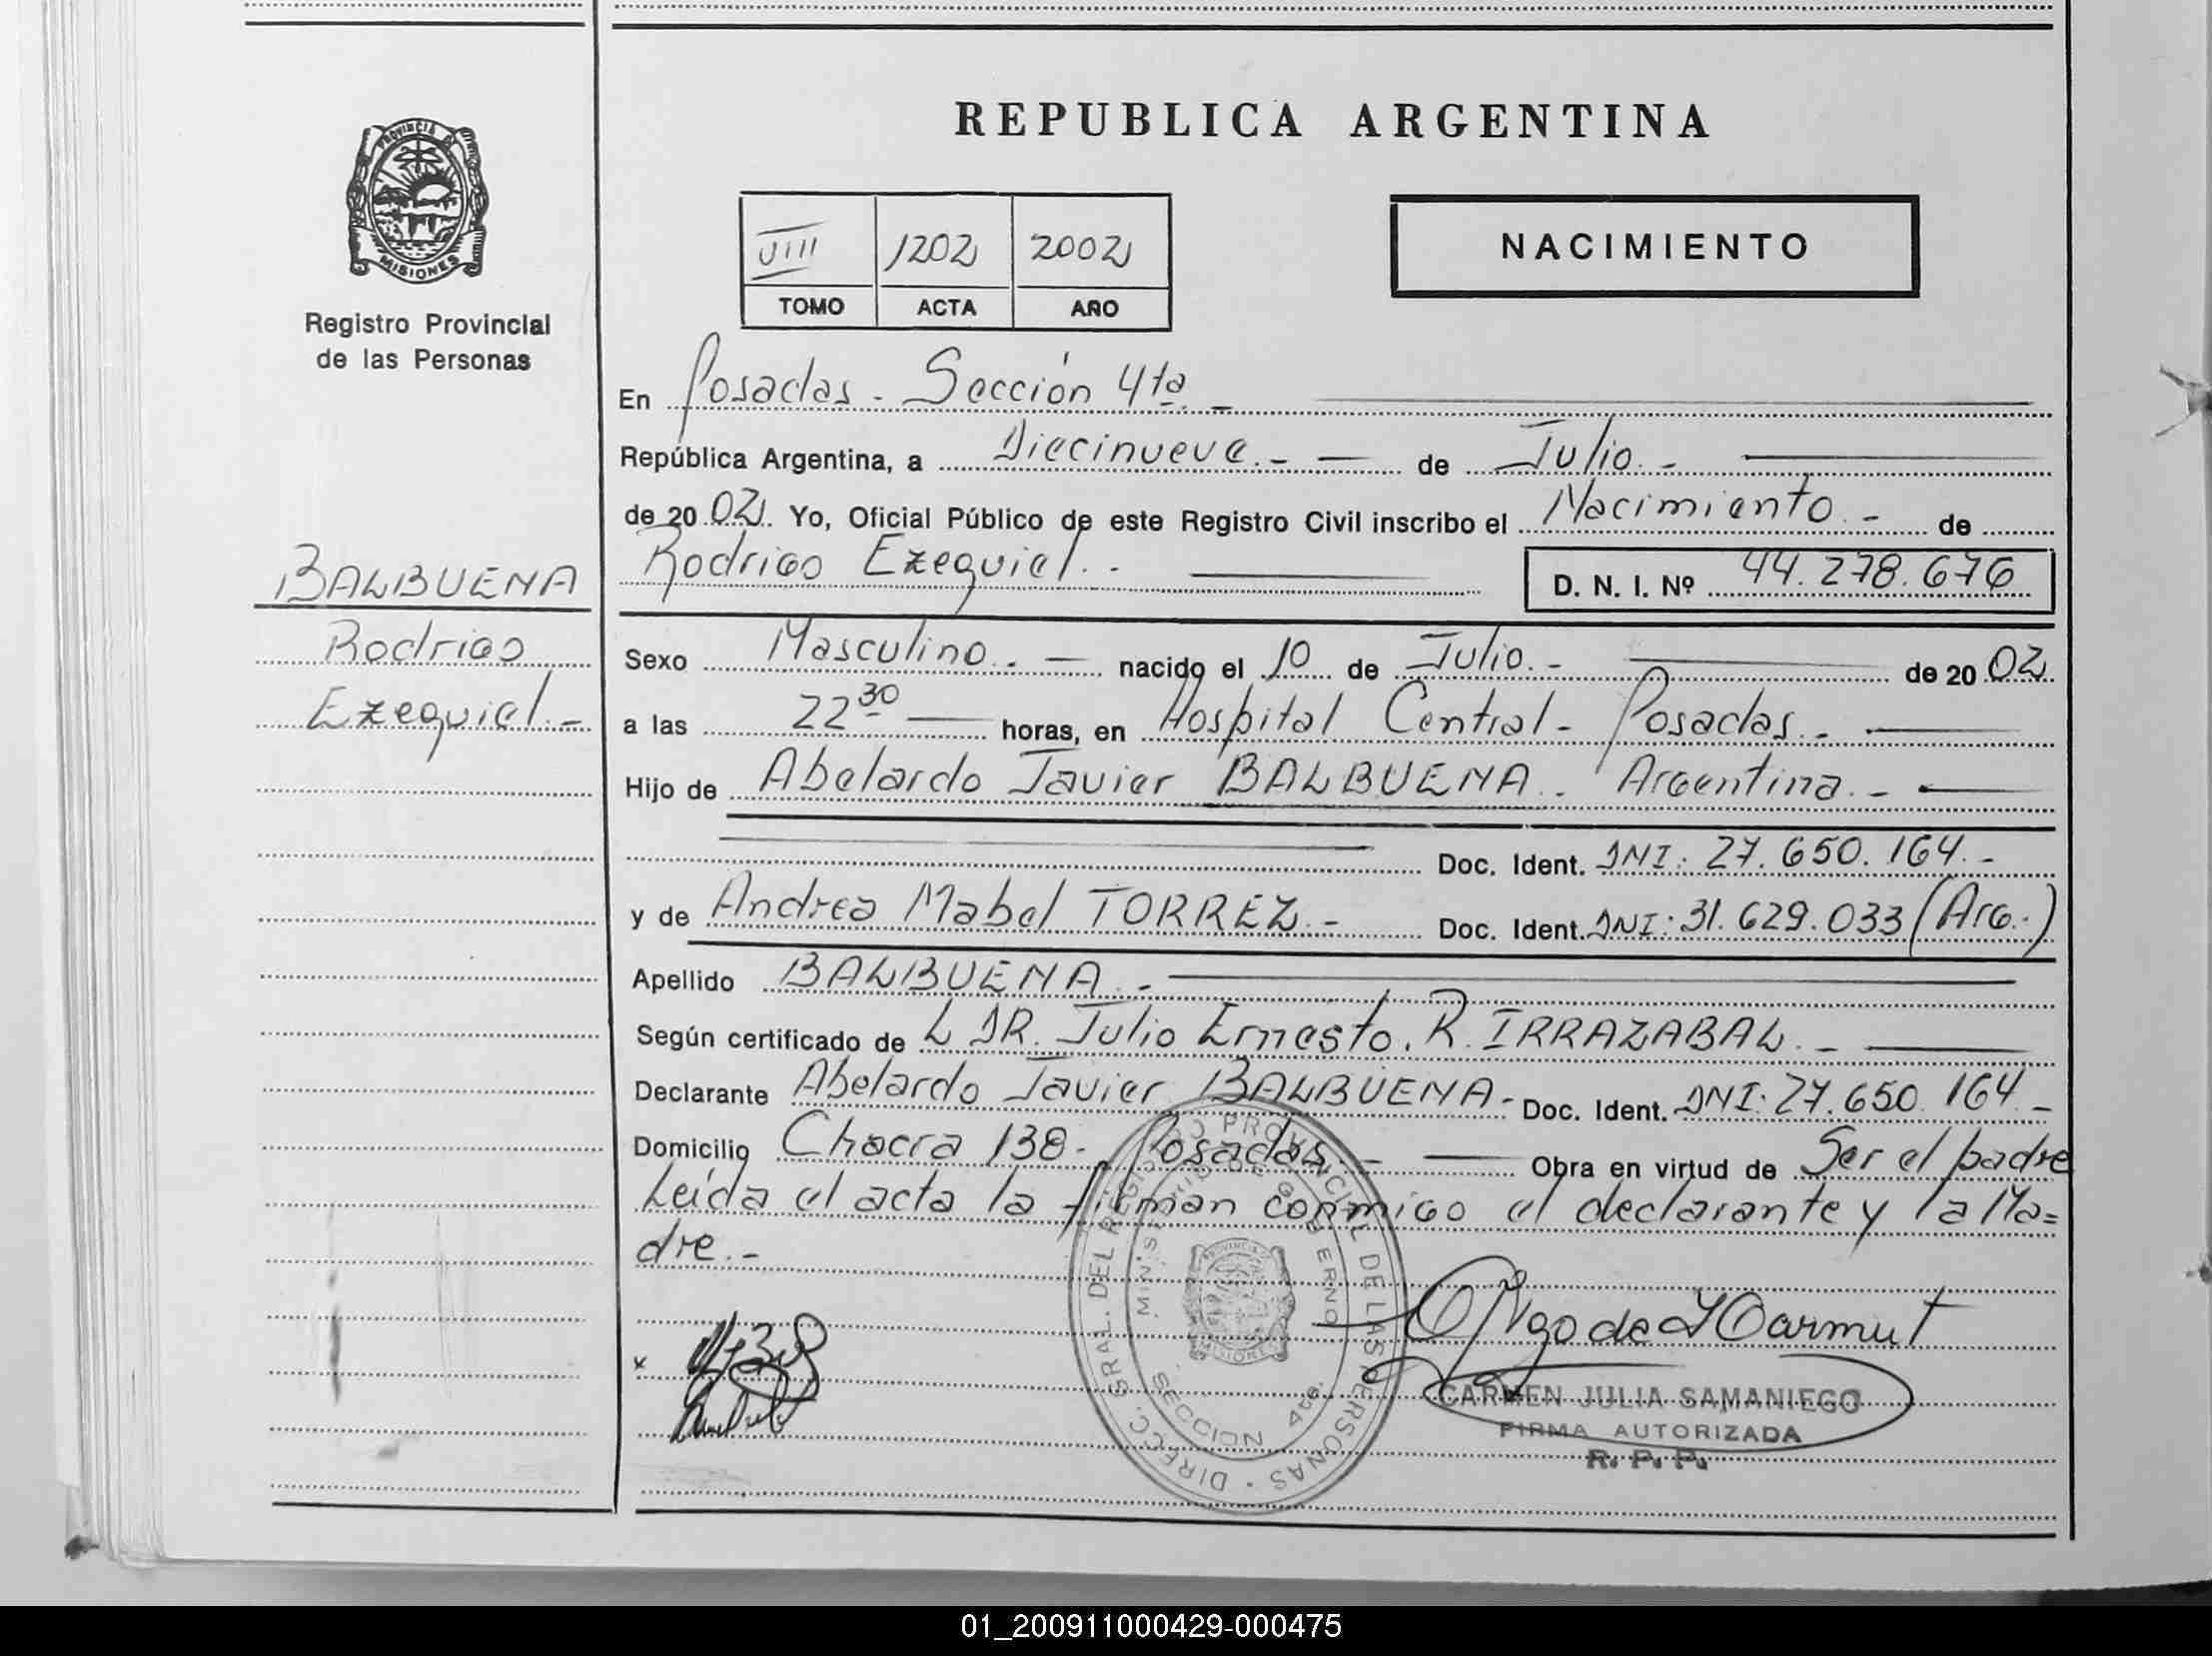 REPUBLICA ARGENTINA
PROVINCIA DE
MISIONES
Registro Provincial
de las Personas
VIII 1202 2002
TOMO ACTA AÑO
NACIMIENTO
En Posadas - Sección 4ta. -
República Argentina, a Diecinueve. - de Julio. -
de 20 02. Yo, Oficial Público de este Registro Civil inscribo el Nacimiento. - de
BALBUENA
Rodrigo Ezequiel. - D. N. I. Nº 44.278.676
Rodrigo
Ezequiel. -
Sexo Masculino. - nacido el 10 de Julio. - de 20 02
a las 22 30 horas, en Hospital Central - Posadas. -
Hijo de Abelardo Javier BALBUENA. Argentina. -
Doc. Ident. DNI: 27.650.164. -
y de Andrea Mabel TORREZ. - Doc. Ident. DNI: 31.629.033 (Arg.)
Apellido BALBUENA. -
Según certificado de L DR. Julio Ernesto. R. IRRAZABAL. -
Declarante Abelardo Javier BALBUENA - Doc. Ident. DNI: 27.650.164 -
Domicilio Chacra 138 - Posadas. - Obra en virtud de Ser el padre
Leída el acta la firman conmigo el declarante y la Ma=
dre. -
DIRECC. GRAL. DEL REGISTRO PROVINCIAL DE LAS PERSONAS
MINISTERIO DE GOBIERNO
PROVINCIA DE
MISIONES
SECCION 4ta.
CARMEN JULIA SAMANIEGO
FIRMA AUTORIZADA
R. P. P.
01_200911000429-000475